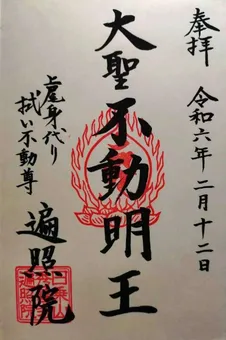 奉拝
令和六年二月十二日
大聖不動明王
身代り
拭い不動尊
遍照院